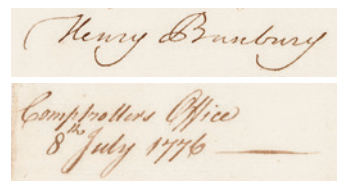 Henry Bunbury
Comptrollers Office
8th July 1776